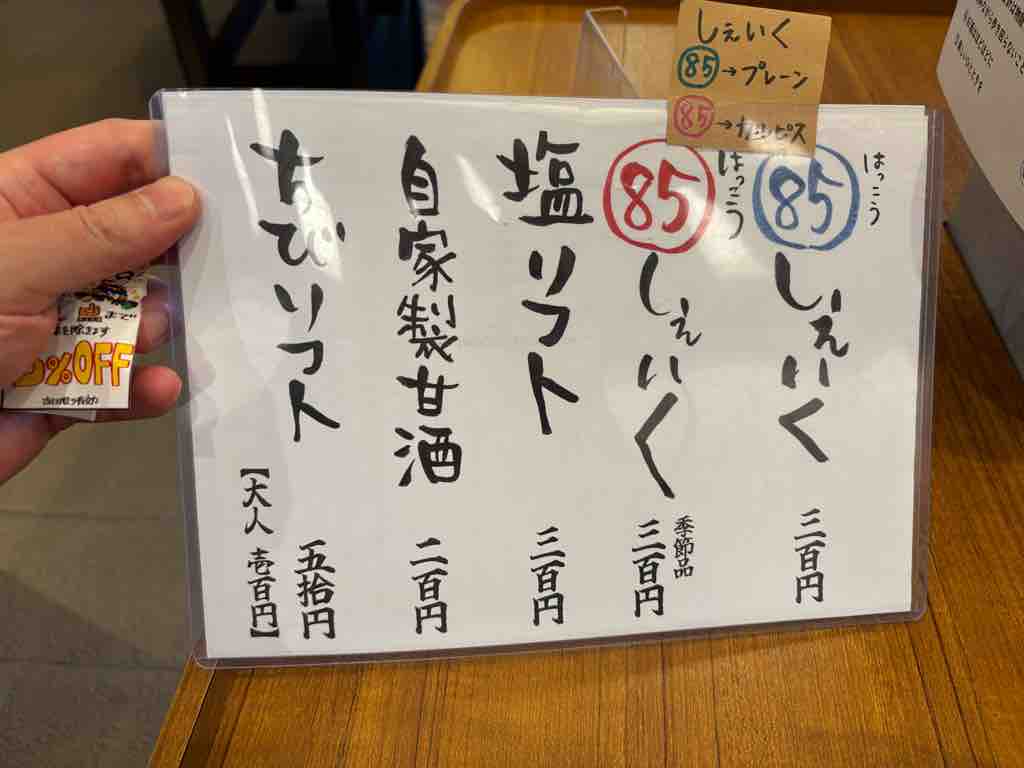 しぇいく
85→プレーン
85→カルピス
はっこう
85しぇいく 三百円
はっこう
85しぇいく 季節品 三百円
塩ソフト 三百円
自家製甘酒 二百円
ちびソフト 五拾円
【大人 壱百円】
まで
%OFF